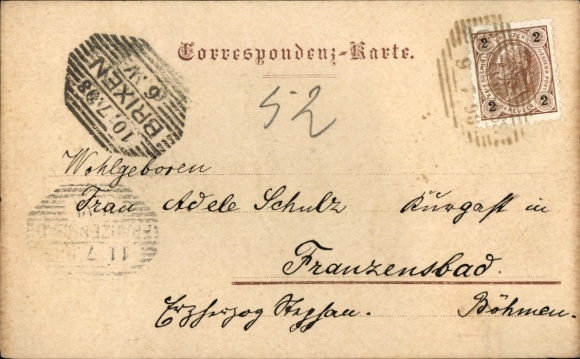 Correspondenz-Karte.
2 2
2 2
BRIXEN
10.7.98
6.N
52
Wohlgeboren
Frau Adele Schulz Kurgast in
Franzensbad.
Erzherzog Stephan. Böhmen.
11.7